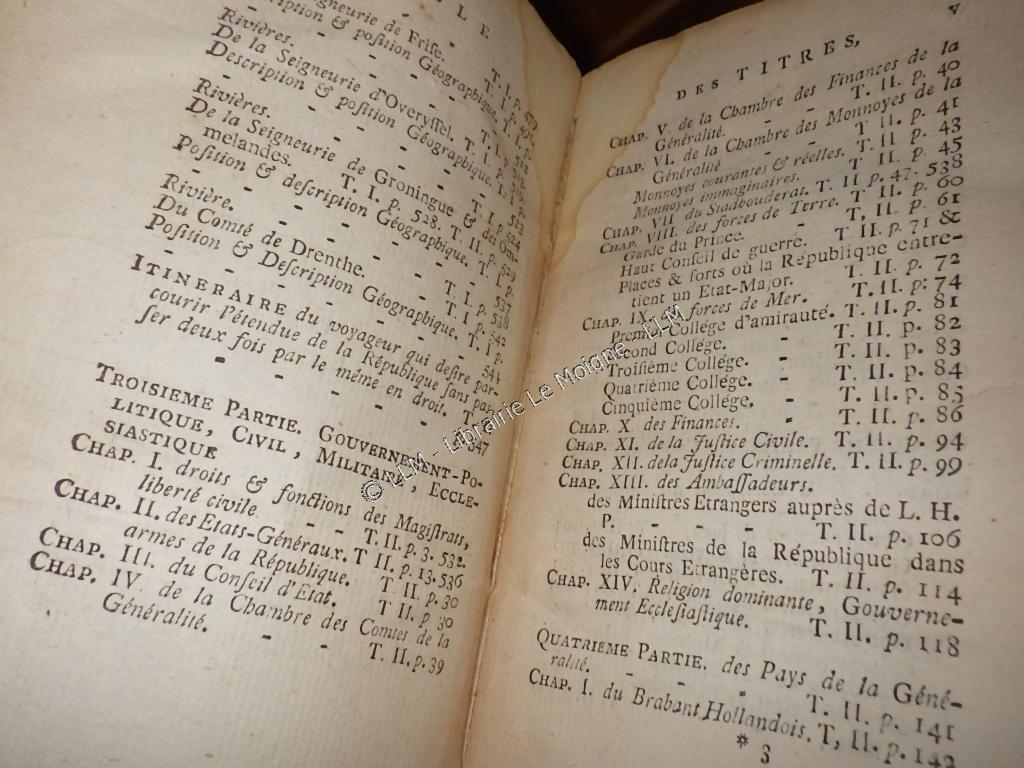 L E
Seigneurie de Frise. - T. I. p. 479
Description & position Géographique. T. I. p.
Rivières. - - - T. I. p.
De la Seigneurie d'Overyssel. T. I. p. 512
Description & position Géographique. T. I. p.
Rivières. - - - T. I. p. 523
De la Seigneurie de Groningue & des Ommelandes.
T. I. p. 528. T. II. p. 529
Position & description Géographique. T. I. p.
Rivière. - - - T. I. p. 537
Du Comté de Drenthe. - T. I. p. 538
Position & Description Géographique. T. I. p.
- - - 542
ITINERAIRE du voyageur qui desire par-
courir l'étendue de la République sans pas-
ser deux fois par le même en droit. T. I. p.
- - - 547
TROISIEME PARTIE. GOUVERNEMENT-PO-
LITIQUE, CIVIL, MILITAIRE, ECCLE-
SIASTIQUE
CHAP. I. droits & fonctions des Magistrats,
liberté civile. - - T. II. p. 3. 532.
CHAP. II. des Etats-Généraux. T II. p. 13. 536
armes de la République. T II. p. 30
CHAP. III. du Conseil d'Etat. T II. p 30
CHAP. IV. de la Chambre des Comtes de la
Généralité. - - T. II. p. 39
DES TITRES, v
CHAP. V. de la Chambre des Finances de la
Généralité. - - T. II. p. 40
CHAP. VI. de la Chambre des Monnoyes de la
Généralité - - T. II. p. 41
Monnoyes courantes & réelles. T. II. p. 43
Monnoyes immaginaires. T. II. p. 45
CHAP. VII du Stadhouderat. T. II p. 47. 538
CHAP. VIII. des forces de Terre. T. II. p. 60
Garde du Prince. - T, II. p. 61
Haut Conseil de guerre. T. II. p. 71 &
Places & forts où la République entre-
tient un Etat-Major. T. II. p. 72
CHAP. IX. des forces de Mer. T. II. p: 74
Premier Collége d'amirauté. T. II. p. 81
Second Collége. - T. II. p. 82
Troisième Collége. - T. II. p. 83
Quatrième Collége. - T. II. p. 84
Cinquième Collége. - T. II. p. 85
CHAP. X. des Finances. - T. II. p. 86
CHAP. XI. de la Justice Civile. T. II. p. 94
CHAP. XII. dela Justice Criminelle. T. II. p. 99
CHAP. XIII. des Ambassadeurs.
des Ministres Etrangers auprès de L. H.
P. - - - - T. II. p. 106
des Ministres de la République dans
les Cours Etrangères. T. II. p. 114
CHAP. XIV. Religion dominante, Gouverne-
ment Ecclesiastique. T. II. p. 118
QUATRIEME PARTIE. des Pays de la Géné-
ralité. - - - T. II. p. 141
CHAP. I. du Brabant Hollandois. T, II. p. 142
* 3
© LLM - Librairie Le Moigne - LLM